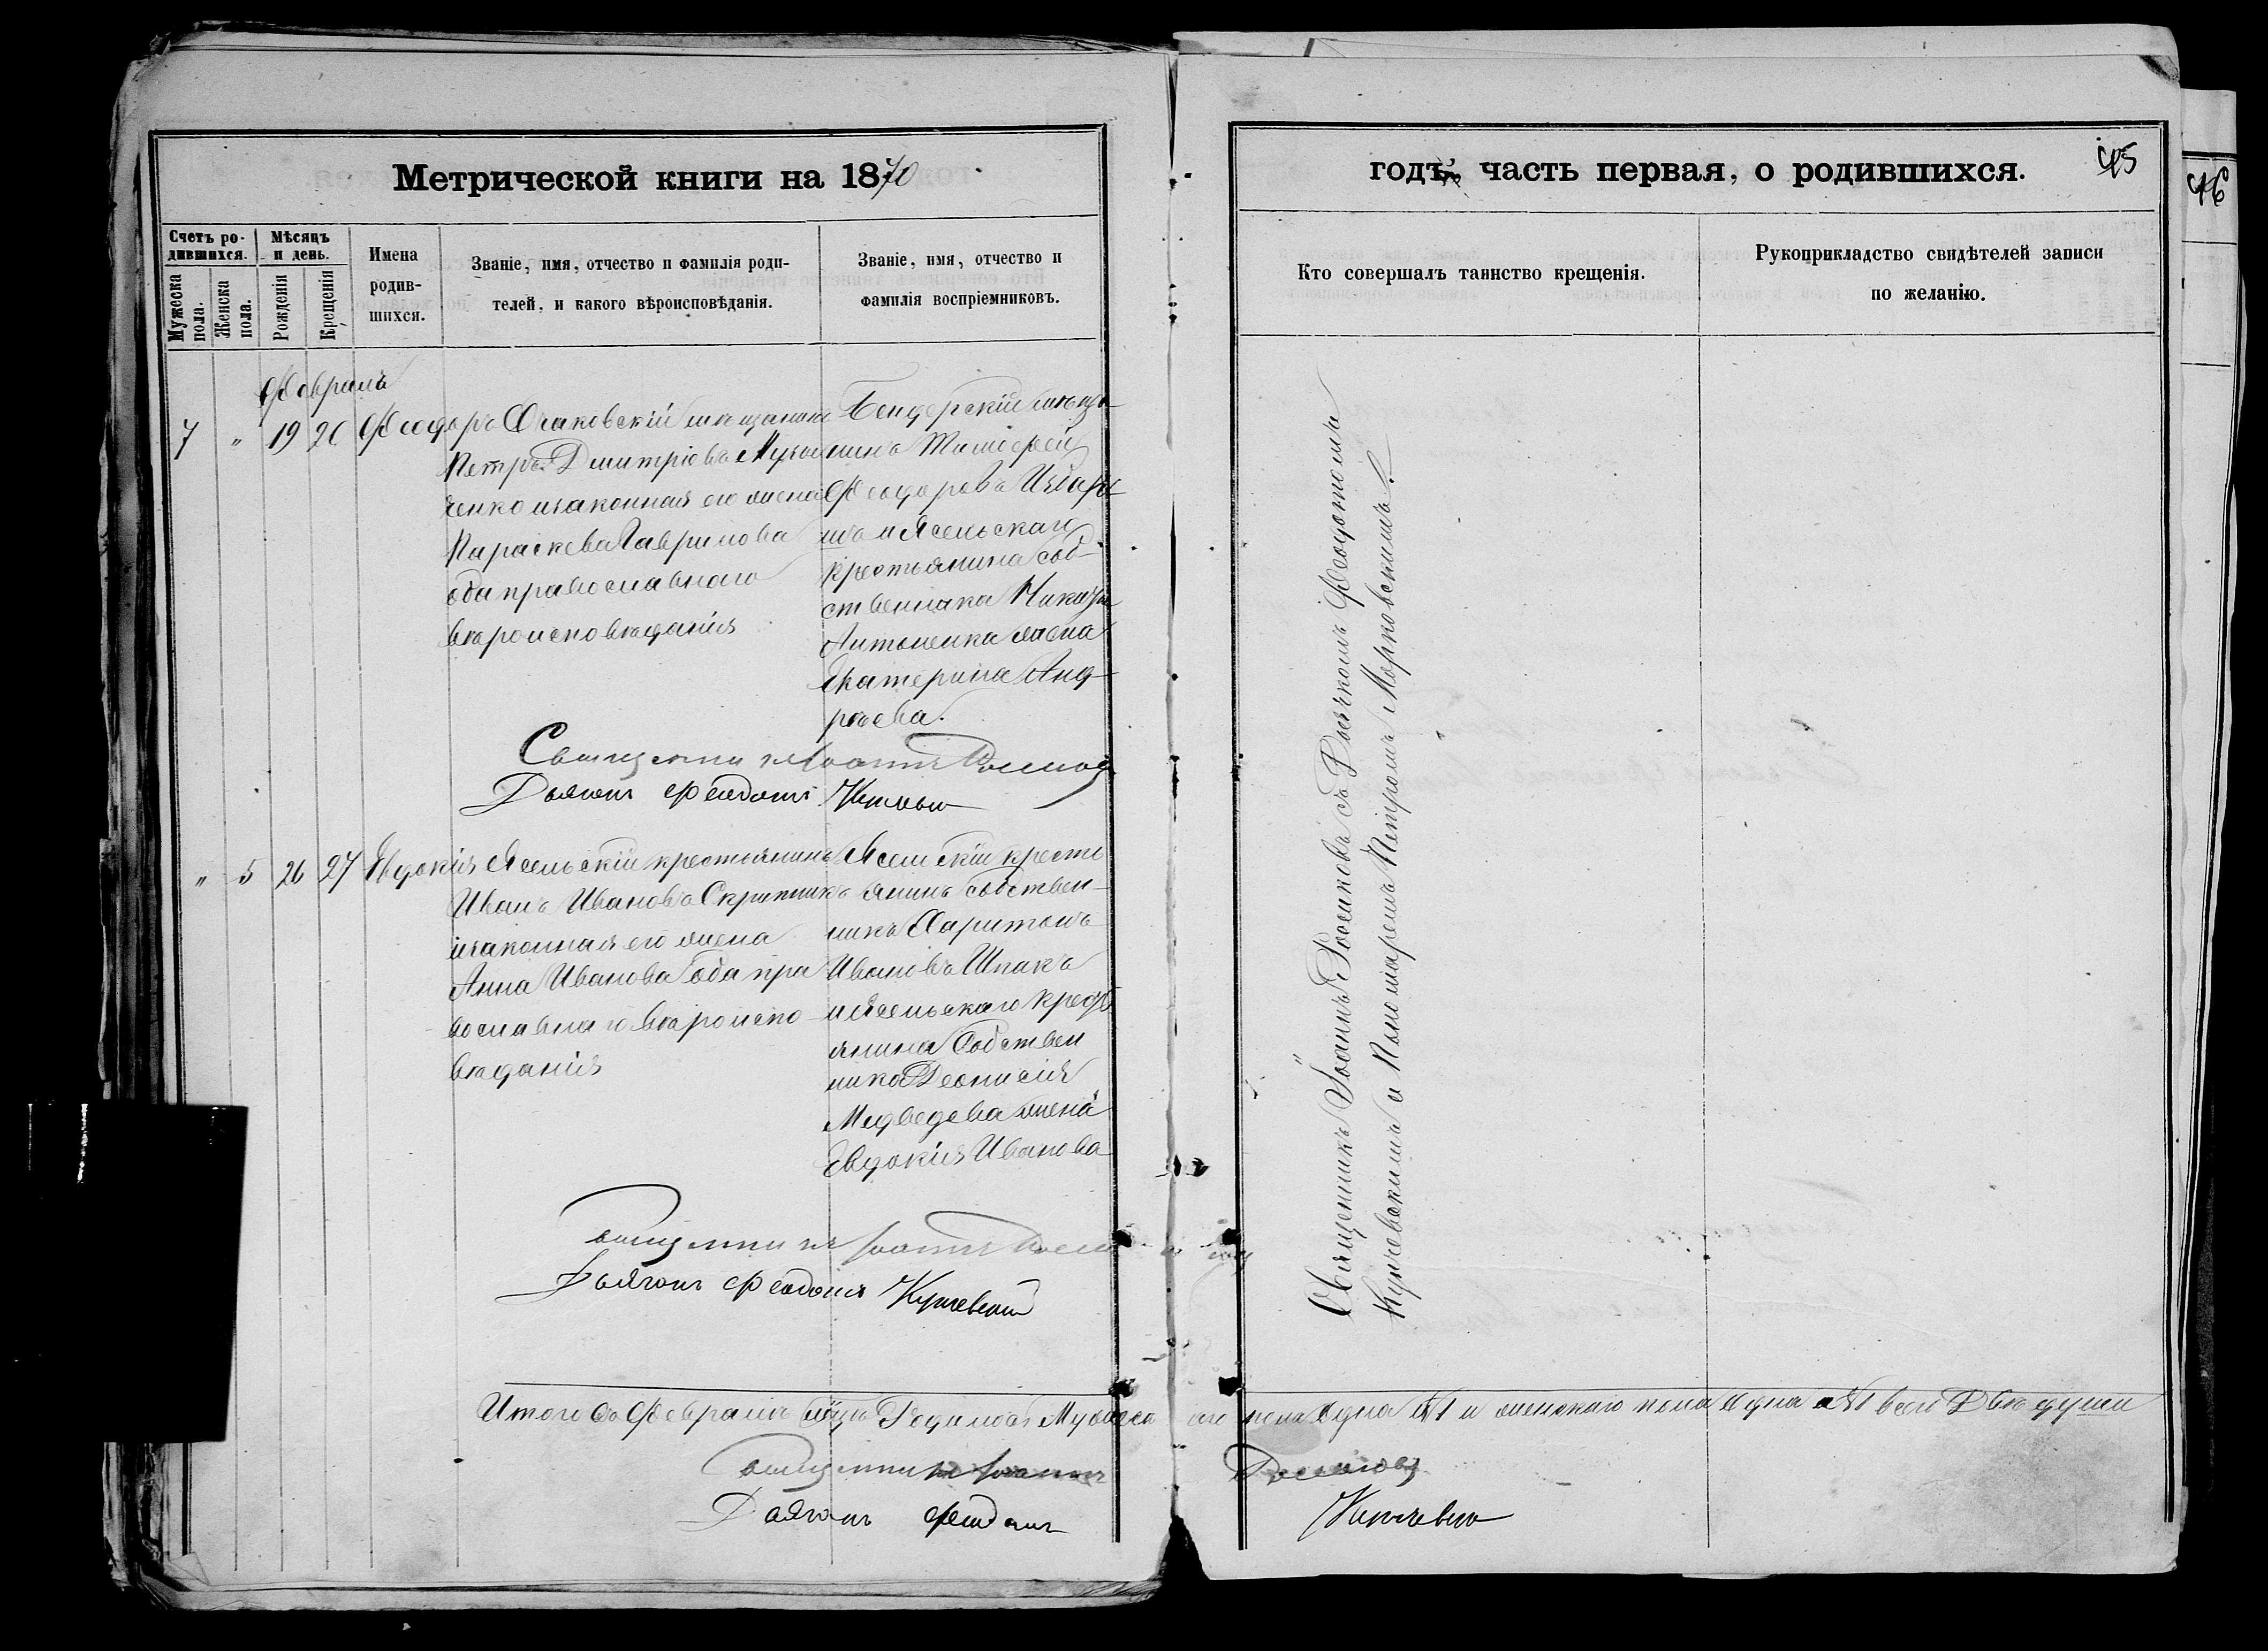 Метрической книги на 1870
годъ часть первая, о родившихся.
45
46
Счетъ ро-
дившихся.
Мужеска пола.
Женска пола.
Мѣсяцъ
и день.
Рожденія
Крещенія
Имена
родив-
шихся.
Званіе, имя, отчество и фамилія роди-
телей, и какого вѣроисповѣданія.
Званіе, имя, отчество и
фамилія воспріемниковъ.
Кто совершалъ таинство крещенія.
Рукоприкладство свидѣтелей записи
по желанію.
Февраль
7 " 19 20 Феодоръ
Очаковскій мѣщанинъ
Петръ Дмитріевъ
ченко изаконная его жена
Параскева Гаврилова
оба православнаго
вѣроисповѣданія
Бендерскій мѣща-
нинъ Тимофей
Феодоровъ
и Ясельскаго
крестьянина соб-
ственника
Антоненка жена
Екатерина Анд-
рѣева.
Священникъ Іоаннъ
Дьячокъ Феодотъ
" 5 26 27 Евдокія
Ясельскій крестьянинъ
Иванъ Ивановъ Скрипникъ
изаконная его жена
Анна Иванова оба пра
вославнаго вѣроиспо-
вѣданія
Ясельскій кресть
янинъ собствен-
никъ Харитонъ
Ивановъ Шпакъ
и Ясельскаго крест
янина Собствен
ника Деонисія
Медведева жена
Евдокія Иванова
Священникъ Іоаннъ
Дьячокъ Феодотъ Кунчевскій
Священникъ Іоаннъ Росликовъ съ Дьячкомъ Феодотомъ
Кунчевскимъ и Пономаремъ Петромъ Морковскимъ
Итого въ Февралѣ мцѣ Родилось Мужеска го пола одна 1 и женскаго пола одна 1 всего Двѣ души
Священникъ Іоаннъ Росликовъ
Дьячокъ Феодотъ Кунчевскій